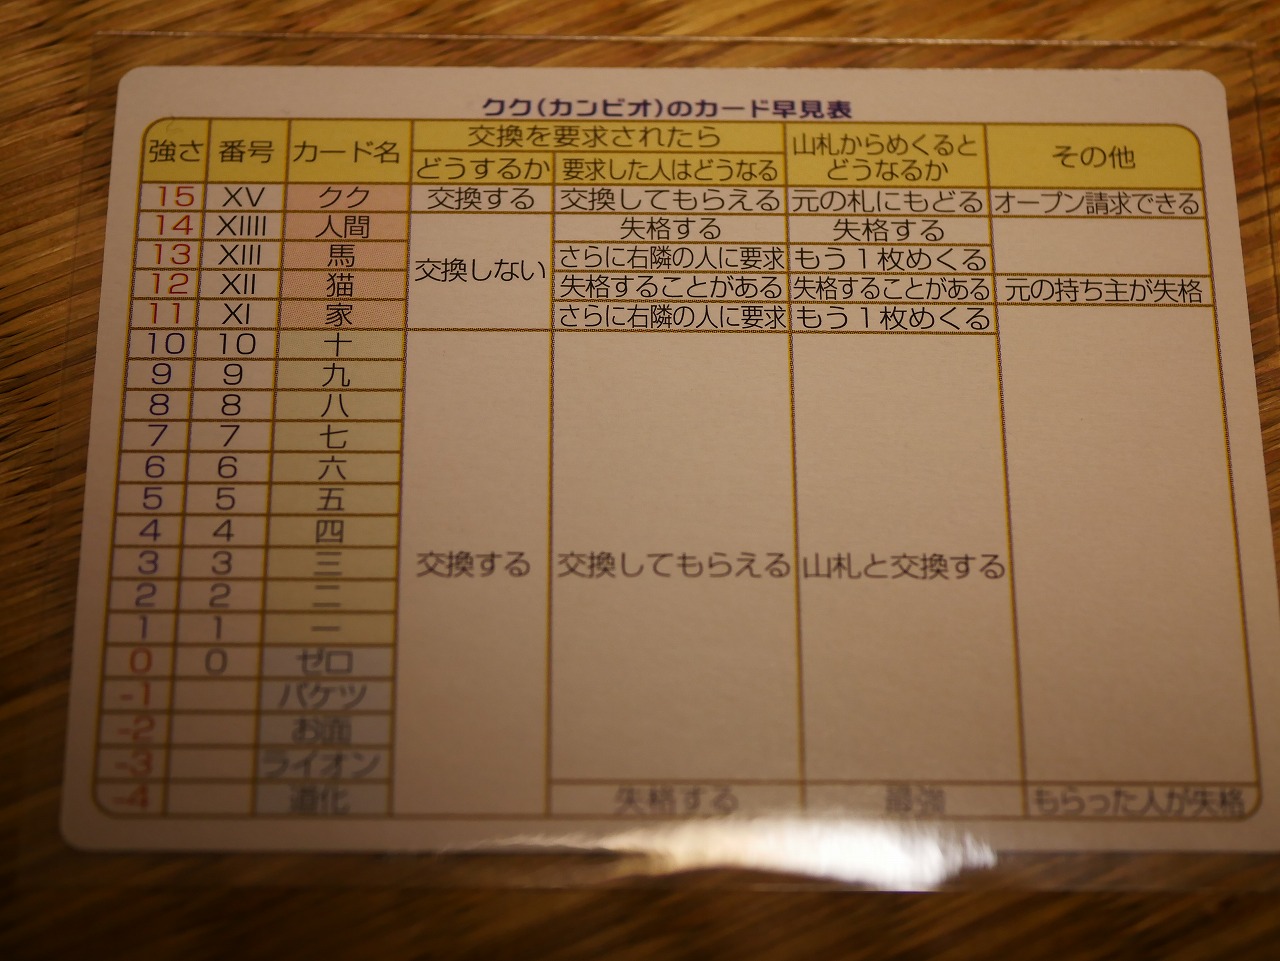 クク(カンビオ)のカード早見表
強さ 番号 カード名 交換を要求されたら 山札からめくるとどうなるか その他
どうするか 要求した人はどうなる
15 XV クク 交換する 交換してもらえる 元の札にもどる オープン請求できる
14 XIIII 人間 交換しない 失格する 失格する
13 XIII 馬 さらに右隣の人に要求 もう1枚めくる
12 XII 猫 失格することがある 失格することがある 元の持ち主が失格
11 XI 家 さらに右隣の人に要求 もう1枚めくる
10 10 十
9 9 九
8 8 八
7 7 七
6 6 六
5 5 五
4 4 四
3 3 三 交換する 交換してもらえる 山札と交換する
2 2 二
1 1 一
0 0 ゼロ
-1 バケツ
-2 お面
-3 ライオン
-4 道化 失格する 最強 もらった人が失格